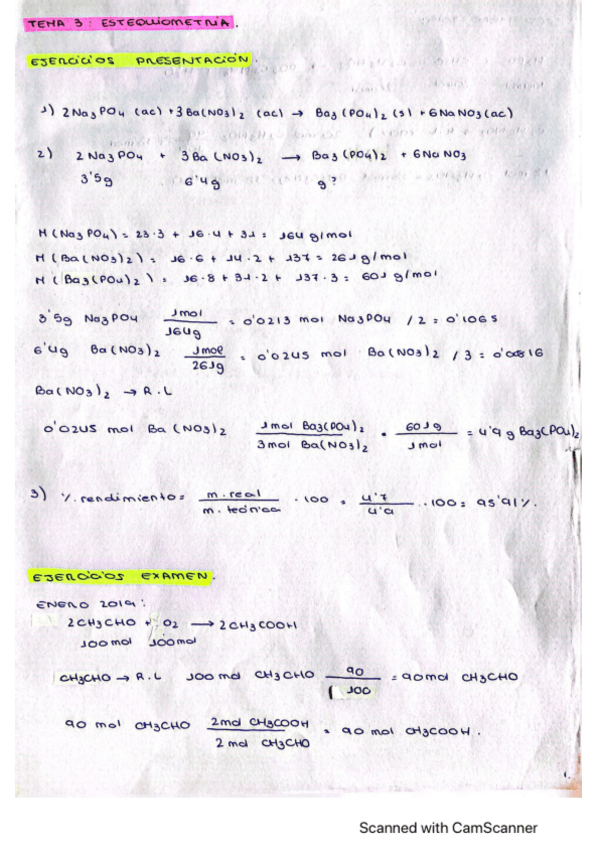 TEMA 3: ESTEQUIOMETRIA.
EJERCICIOS PRESENTACIÓN.
1) 2Na3PO4 (ac) + 3Ba(NO3)2 (ac) → Ba3(PO4)2 (s) + 6NaNO3 (ac)
2) 2Na3PO4 + 3Ba(NO3)2 → Ba3(PO4)2 + 6NaNO3
3'5g 6'4g g?
M(Na3PO4) = 23·3 + 16·4 + 31 = 164 g/mol
M(Ba(NO3)2) = 16·6 + 14·2 + 137 = 261 g/mol
M(Ba3(PO4)2) = 16·8 + 31·2 + 137·3 = 601 g/mol
3'5g Na3PO4 1mol/164g = 0'0213 mol Na3PO4 /2 = 0'1065
6'4g Ba(NO3)2 1mol/261g = 0'0245 mol Ba(NO3)2 /3 = 0'00816
Ba(NO3)2 → R.L
0'0245 mol Ba(NO3)2 1mol Ba3(PO4)2/3mol Ba(NO3)2 · 601g/1mol = 4'9 g Ba3(PO4)2
3) %.rendimiento = m.real/m.teórica ·100 = 4'7/4'9 ··100 = 95'91%.
EJERCICIOS EXAMEN.
ENERO 2019:
2CH3CHO + O2 → 2CH3COOH
100mol 100mol
CH3CHO → R.L 100 mol CH3CHO 90/100 = 90mol CH3CHO
90 mol CH3CHO 2mol CH3COOH/2 mol CH3CHO = 90 mol CH3COOH.
1.
Scanned with CamScanner